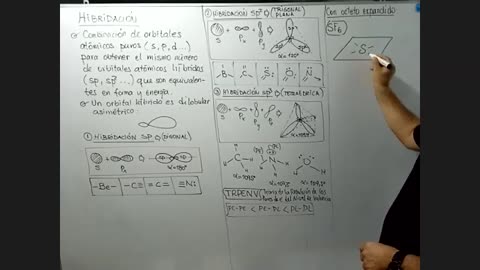 HIBRIDACIÓN
Combinación de orbitales
atómicos puros (s, p, d...)
para obtener el mismo número
de orbitales atómicos híbridos
(sp, sp²...) que son equivalentes
en forma y energía.
Un orbital híbrido es dilobular
asimétrico
① HIBRIDACIÓN SP (DIAGONAL)
S Px α=180°
-Be- -C≡ =C= ≡N:
② HIBRIDACIÓN SP² (TRIGONAL PLANA)
S Px Py α=120°
③ HIBRIDACIÓN SP³ (TETRAÉDRICA)
S Px Py Pz
α=109,5°
H C H H N H O H
α=109,5°
TRPENV: Teoría de la Repulsión de los
Pares de e⁻ del Nivel de Valencia
PE-PE < PE-PL < PL-PL
Con octeto expandido
SF₆
S